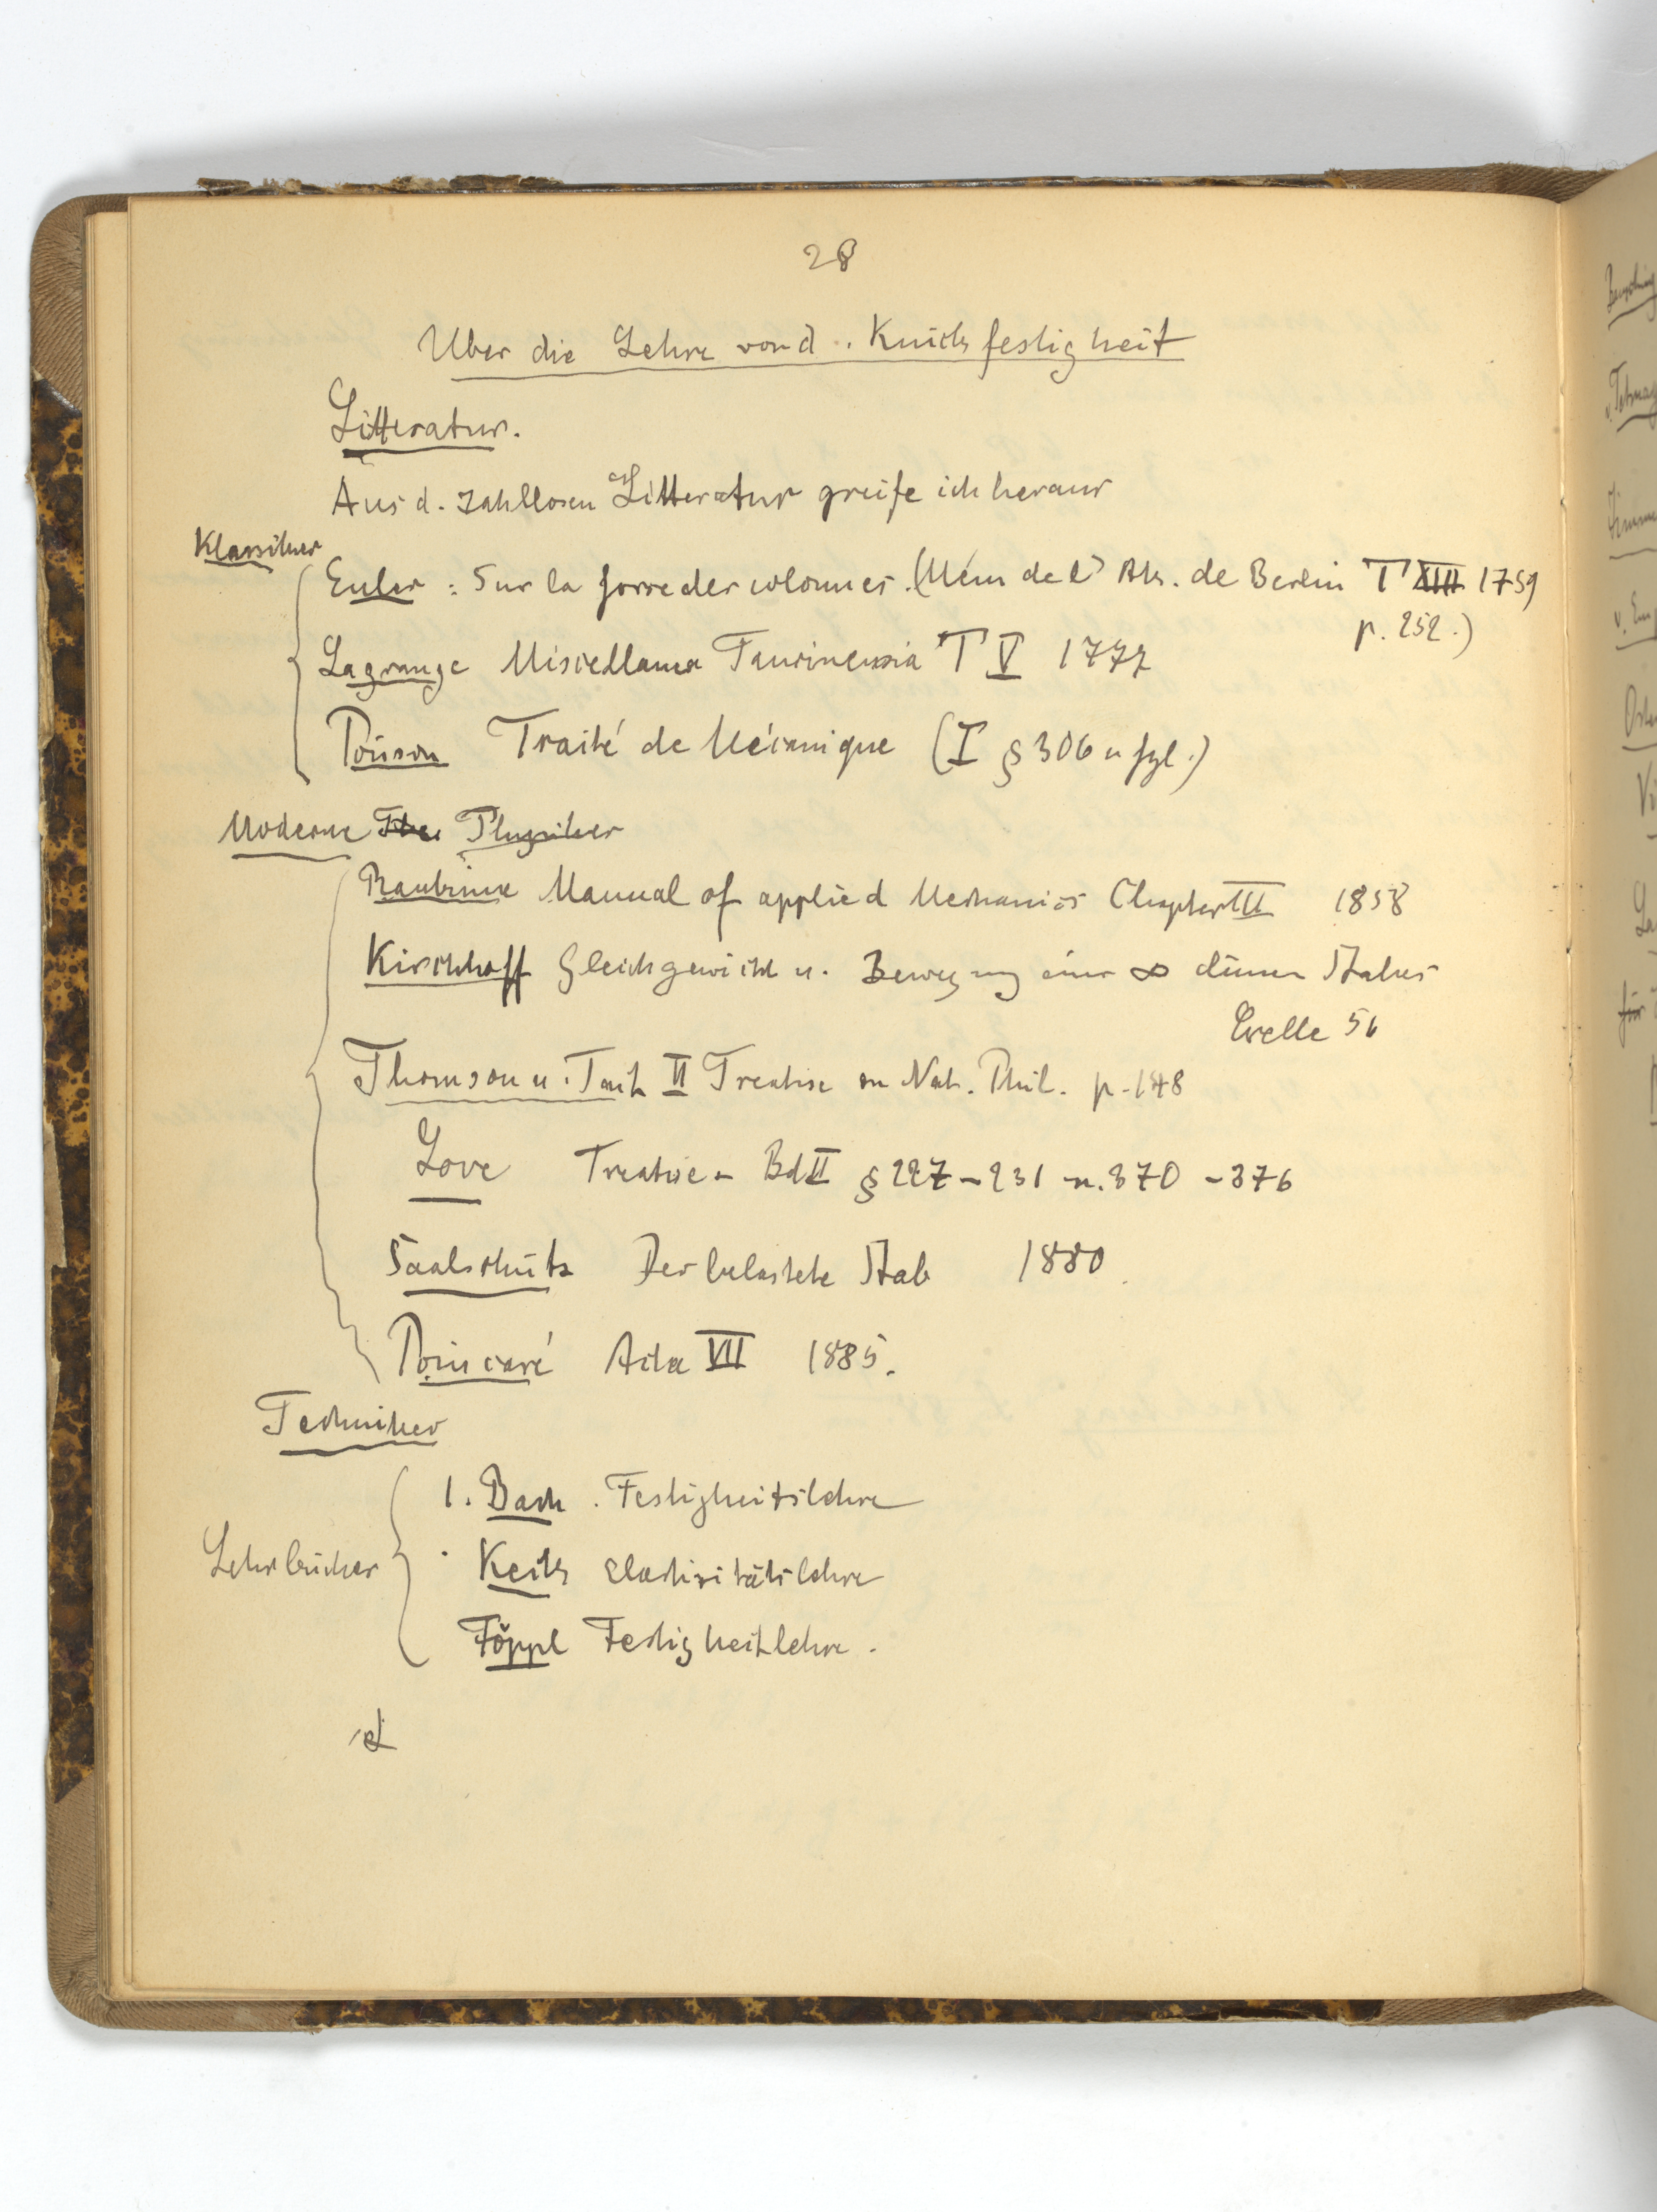 28
Über die Lehre von d. Knickfestigkeit
Litteratur.
Aus d. zahllosen Litteratur greife ich heraus
Klassiker
Euler: Sur la force des colonnes. (Mém de l' Ak. de Berlin T XIII 1759
p. 252.)
Lagrange Miscellanea Taurinensia T V 1777
Poisson Traité de Mécanique (I § 306 u fgl.)
Moderne Physiker
Rankine Manual of applied Mechanics Chapter III 1858
Kirchhoff Gleichgewicht u. Bewegung eines ∞ dünnen Stabes
Crelle 56
Thomson u. Tait II Treatise on Nat. Phil. p. 148
Love Treatise - Bd II § 227 - 231 u. 370 - 376
Saalschütz Der belastete Stab 1880
Poincaré Acta VII 1885.
Techniker
Lehrbücher
1. Bach. Festigkeitslehre
Keck Elasticitätslehre
Föppl Festigkeitslehre.